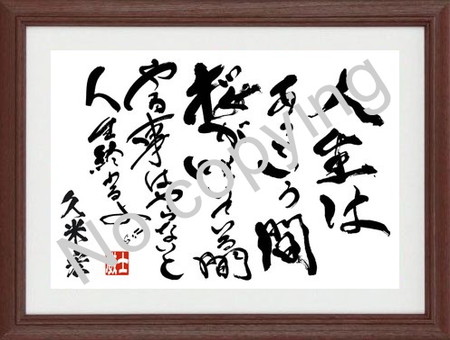 人生は
あっという間
桜が
やる事はやらないと
人生終わるよ
久米宏
No copying